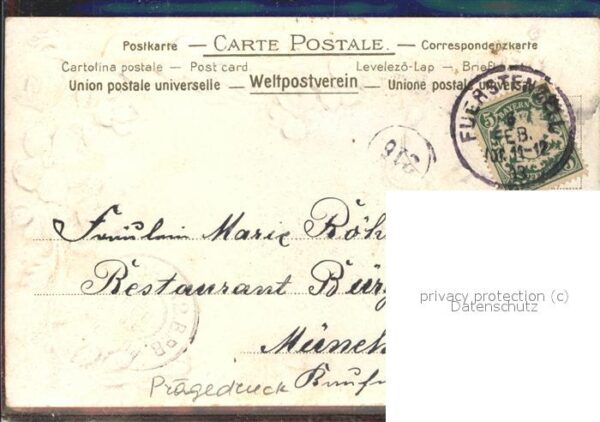 Postkarte — CARTE POSTALE. — Correspondenzkarte
Cartolina postale — Post card Levelező-Lap — Briefkaart
Union postale universelle — Weltpostverein — Unione postale universale
FUERSTENZELL
FEB.
11-12
5 BAYERN
Fräulein Marie Röh
Restaurant Bürg
Münch
Prägedruck
privacy protection (c)
Datenschutz